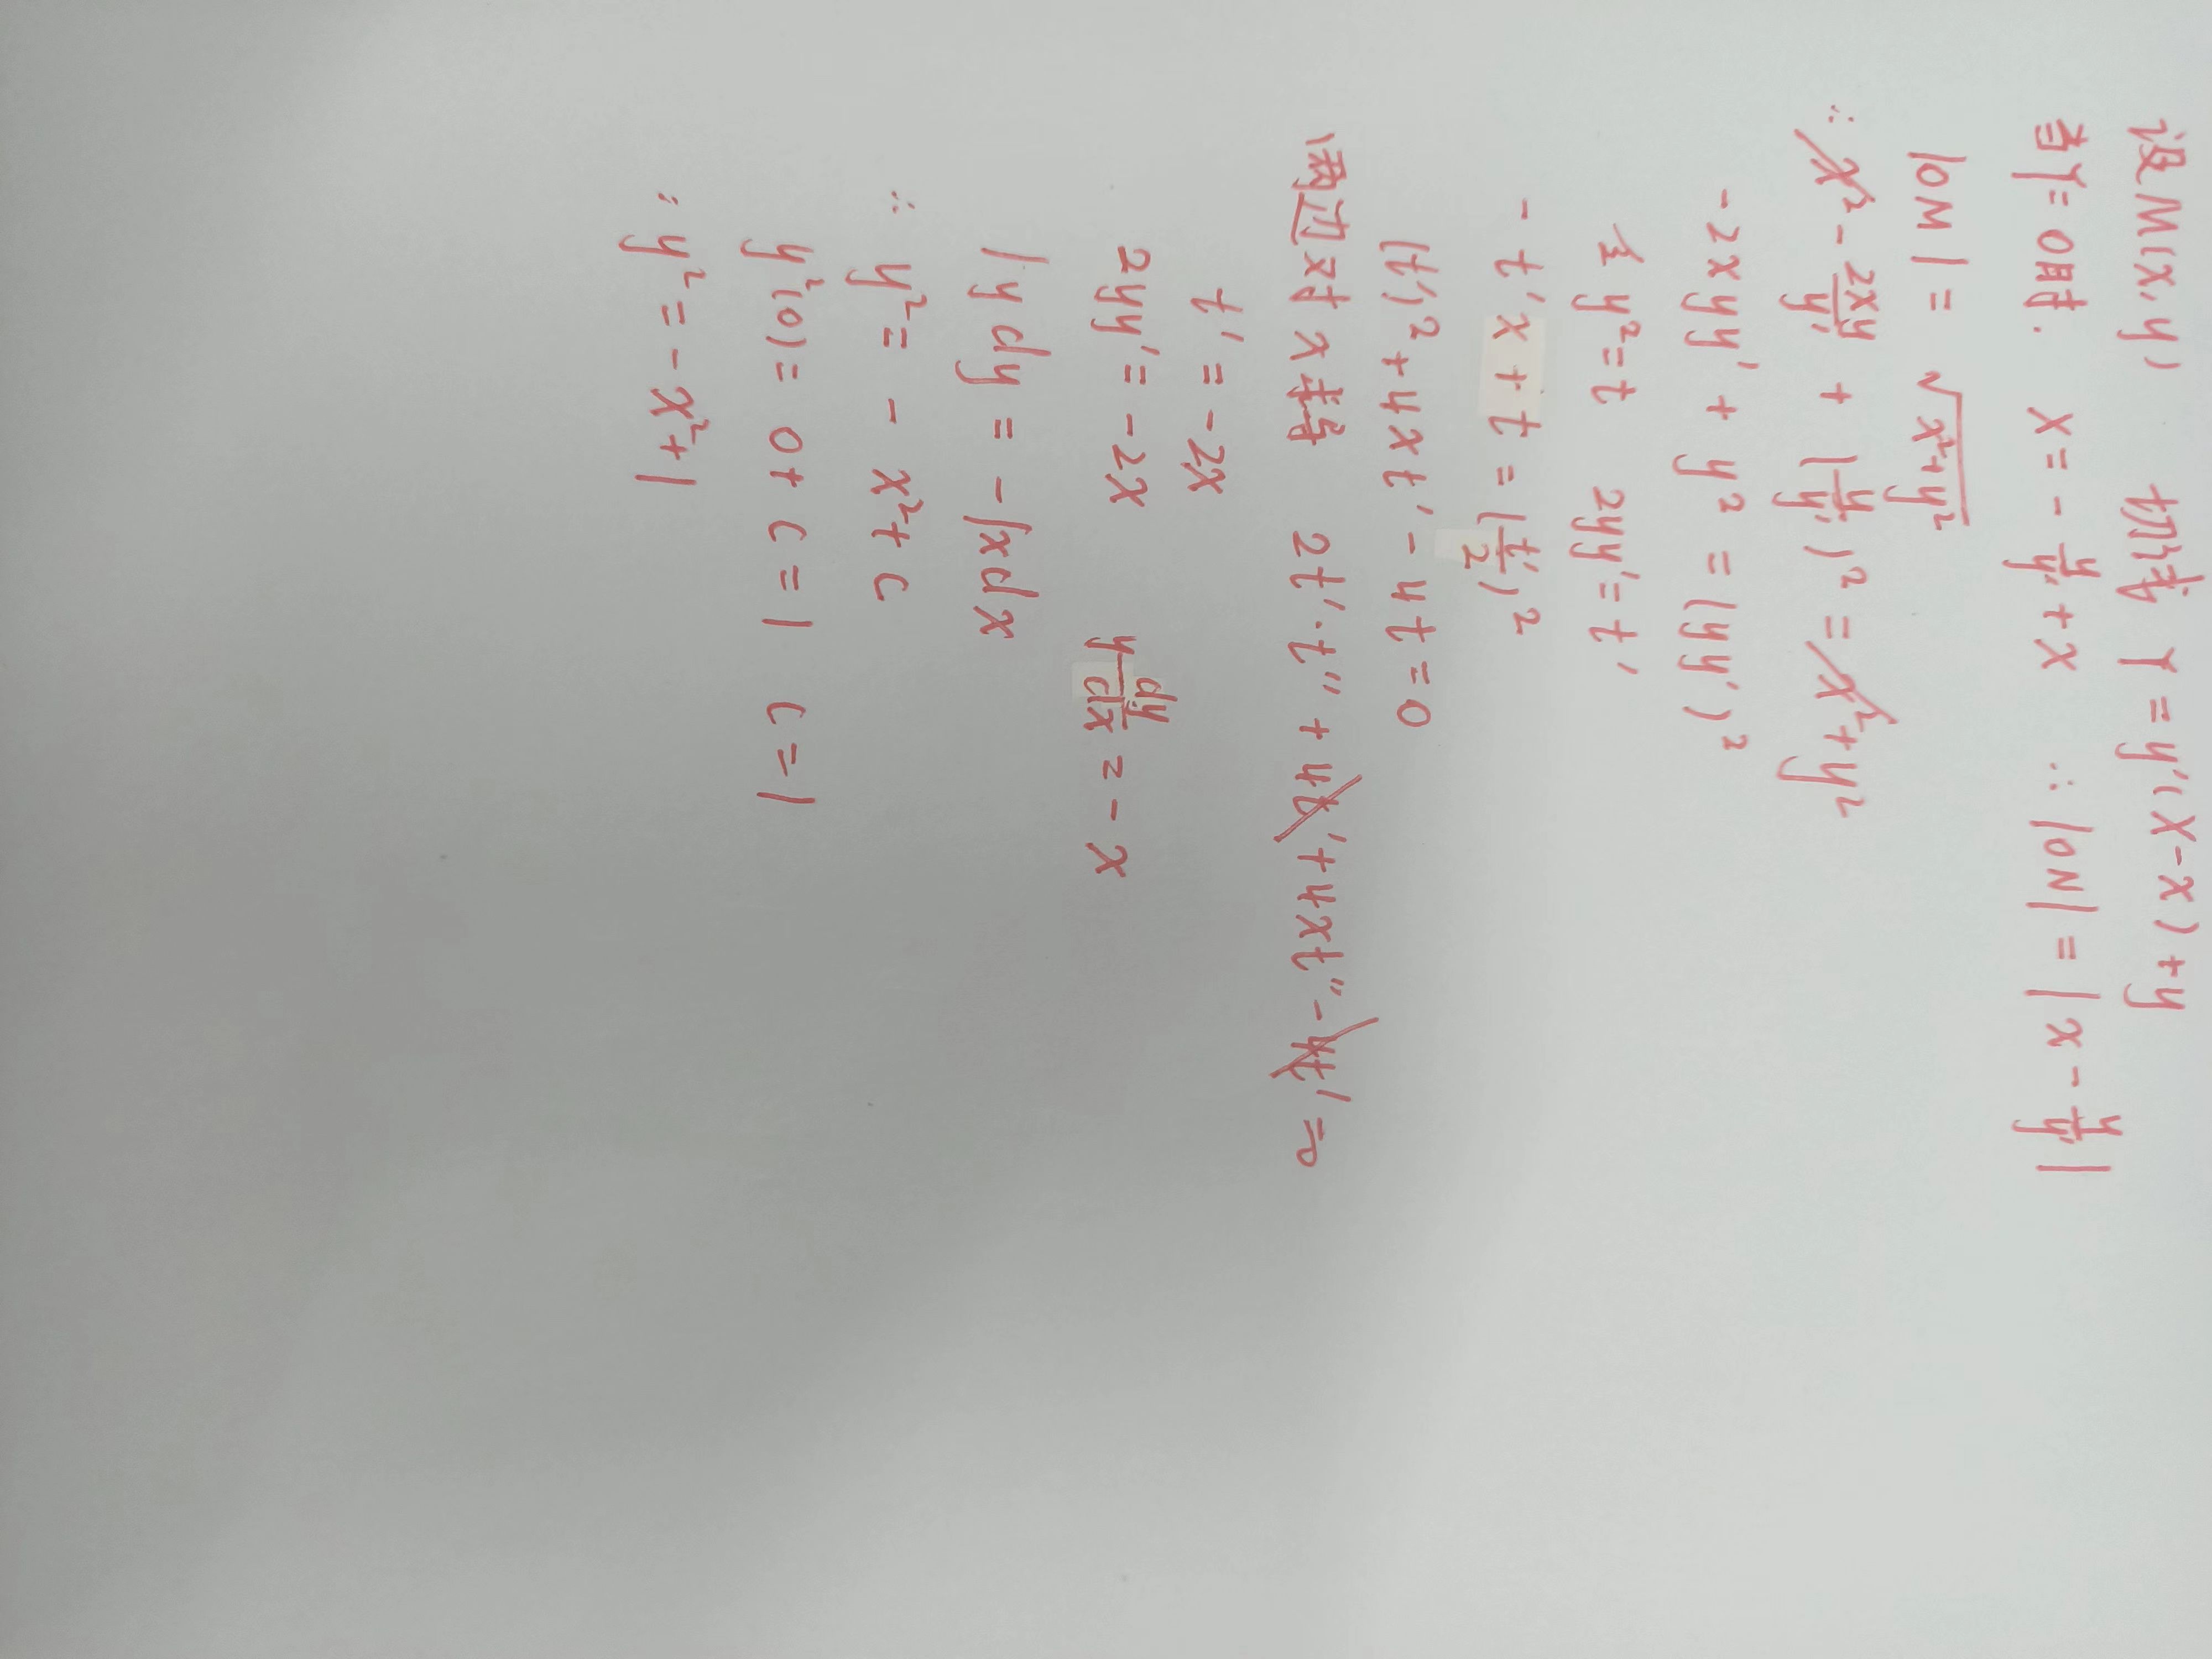 设M(x,y) 切线 Y=y'(X-x)+y
当Y=0时. X=-y/y'+x ∴|ON|=|x-y/y'|
|OM|=√(x²+y²)
∴x²-2xy/y'+(y/y')²=x²+y²
-2xyy'+y²=(yy')²
令y²=t 2yy'=t'
-t'x+t=(t'/2)²
(t')²+4xt'-4t=0
两边对x求导 2t'·t''+4t'+4xt''-4t'=0
t'=-2x
2yy'=-2x y dy/dx=-x
∫ydy=-∫xdx
∴y²=-x²+C
y²(0)=0+C=1 C=1
∴y²=-x²+1